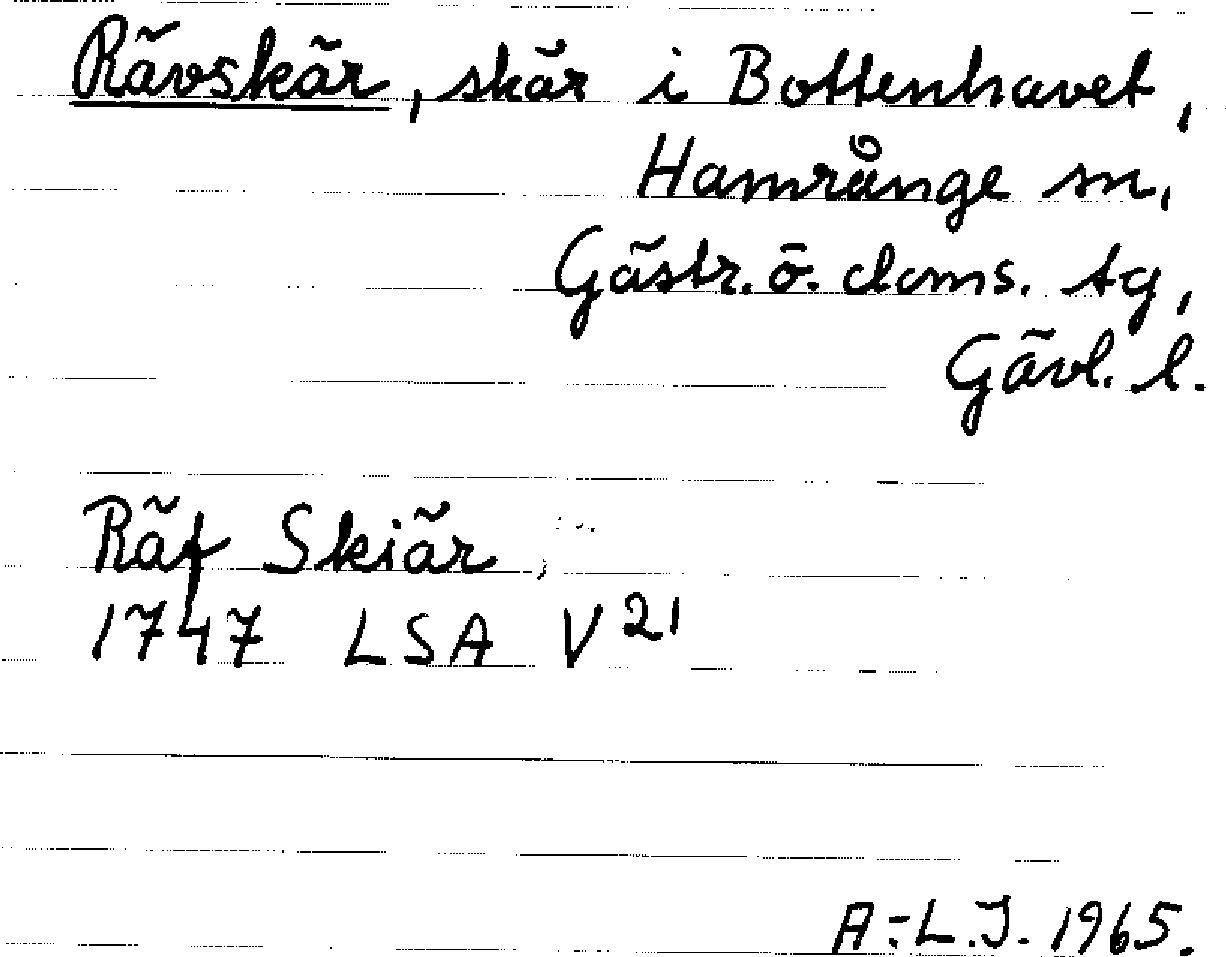 Rävskär, skär i Bottenhavet,
Hamrånge sn,
Gästr. ö. doms. tg,
Gävl. l.
Räf Skiär,
1747 LSA V21
A.-L.J. 1965.